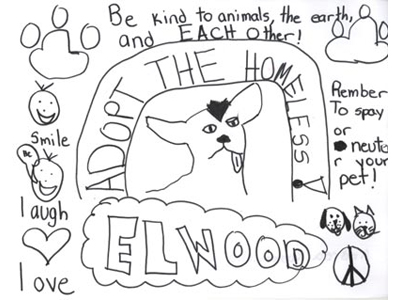 Be kind to animals, the earth,
and EACH Other!
ADOPT THE HOMELESS!
Smile
laugh
love
Rember
To spay
or
neute
r your
pet!
ELWOOD